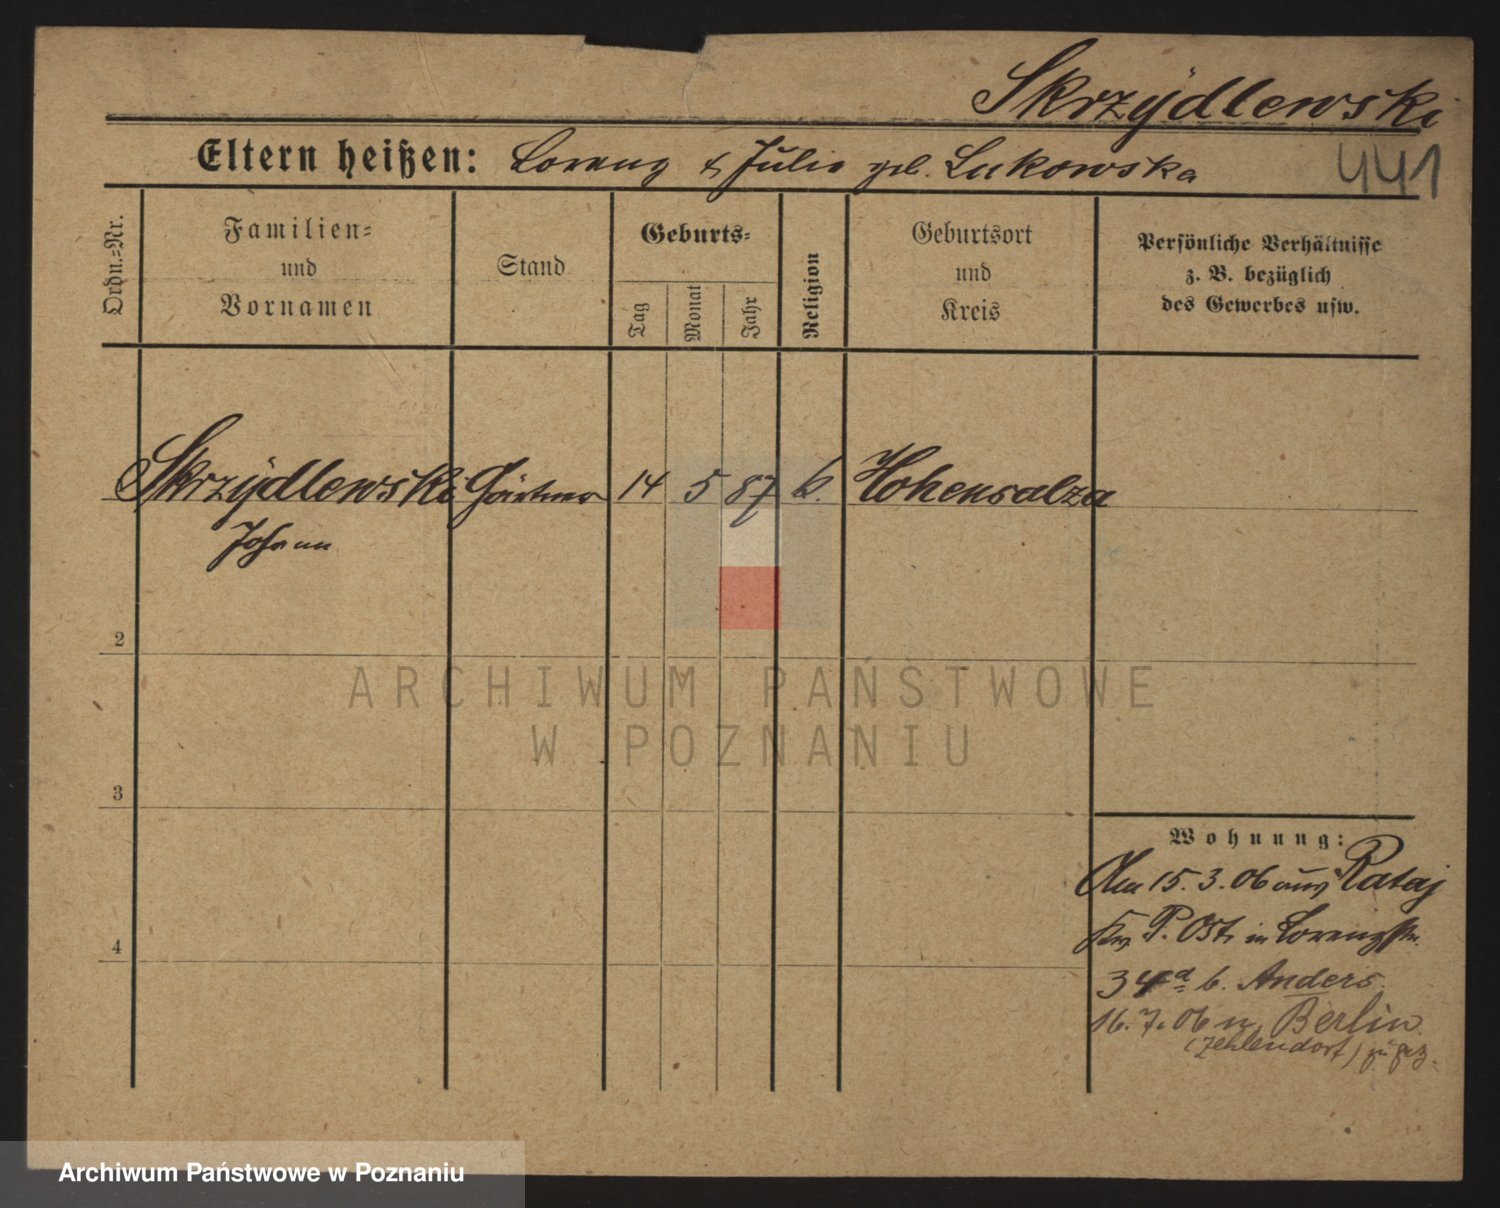 Skrzÿdlewski
Eltern heißen: Lorenz & Julie geb. Lukowska
441
Ordn.=Nr.
Familien=
und
Vornamen
Stand
Geburts=
Tag
Monat
Jahr
Religion
Geburtsort
und
Kreis
Persönliche Verhältnisse
z. B. bezüglich
des Gewerbes usw.
Skrzÿdlewski Gärtner 14 5 87 k. Hohensalza
Johann
2
3
4
Wohnung:
Am 15.3.06 aus Rataj
Krs. P. Ost, in Lorenzstr.
34 d b. Anders.
16.7.06 n. Berlin
(Zehlendorf)
ARCHIWUM PAŃSTWOWE
W POZNANIU
Archiwum Państwowe w Poznaniu